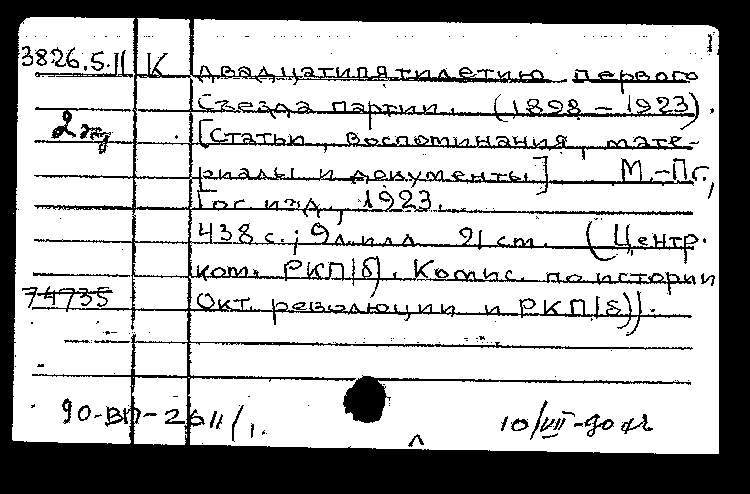 3826.5.11 К Двадцатипятилетию первого
съезда партии. (1898 – 1923).
2 экз [Статьи, воспоминания, мате-
риалы и документы] М.-Пг.,
Гос изд, 1923.
438 с.; 9 л. илл 21 cm. (Центр.
ком. РКП(б). Комис. по истории
74735 Окт. революции и РКП(б)).
90-ВП-2611/1.
10/VII-90